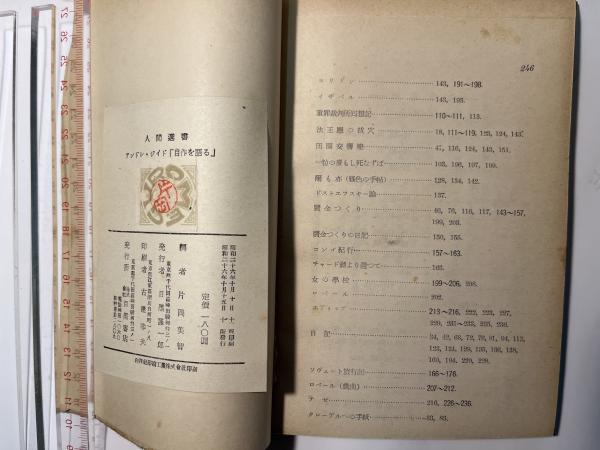 人間選書
アンドレ・ジイド「自作を語る」
片岡
昭和二十六年十月十日 印刷
昭和二十六年十月十五日 発行
定価一八〇圓
編者 片岡美智
発行者 目黒謹一郎
印刷者
発行所 目黒書店
246
コリドン 143, 191~198.
イザベル 143, 193.
重罪裁判所回想記 110~111, 113.
法王廳の抜穴 18, 111~119, 123, 124, 143.
田園交響樂 47, 116, 124, 143, 151.
一粒の麥もし死なずば 103, 196, 197, 199.
爾も亦 128, 134, 142.
ドストエフスキー論 137.
贋金つくり 46, 76, 116, 117, 143~157,
199, 203.
贋金つくりの日記 150, 155.
コンゴ紀行 157~163.
チャード湖より還つて 163.
女の學校 199~206, 208.
ロベール 202.
エディップ 213~216, 222, 223, 227,
日記 34, 42, 68, 72, 78, 81, 94, 113,
ソヴェート旅行記 166~176.
ロベール(戯曲) 207~212.
テゼ 216, 226~236.
クローデルへの手紙 83, 83.